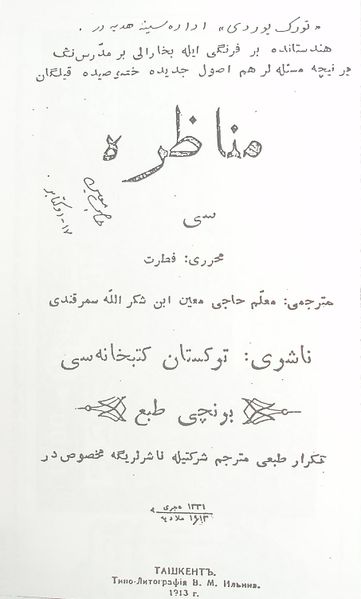 «تورک یوردی» اداره‌سینه هدیه در.
هندستانده بر فرنگی ایله بخارالی بر مدرس‌نگ
بر نیچه مسئله‌لر هم اصول جدیده خصوصیده قیلگان
مناظره
سی
محرری: فطرت
مترجمی: معلم حاجی معین ابن شکر الله سمرقندی
ناشری: تورکستان کتبخانه‌سی
برنچی طبع
تکرار طبعی مترجم شرکتیله ناشرلریگه مخصوص در
١٣٣١ هجری
١٩١٣ میلادیه
ТАШКЕНТЪ.
Типо-Литографія В. М. Ильина.
1913 г.